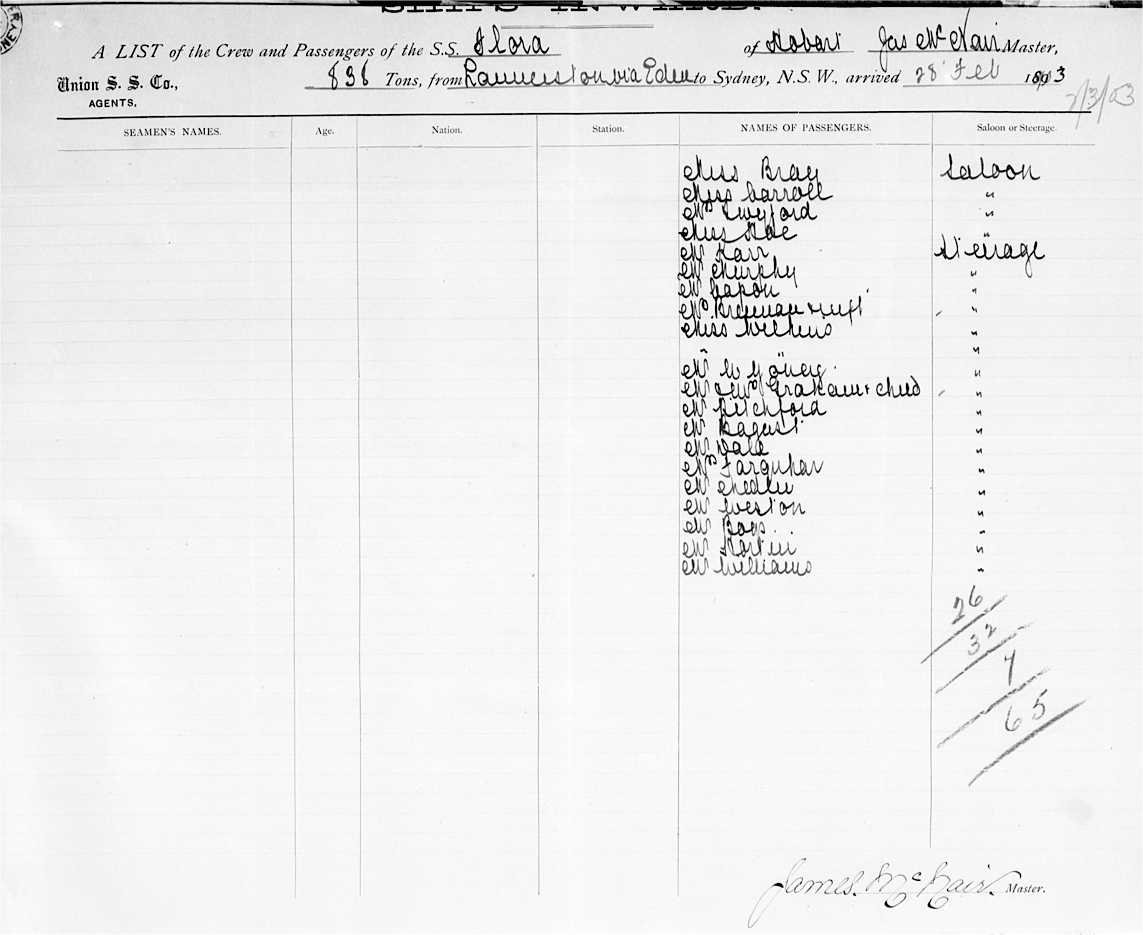 SHIPS INWARD.
A LIST of the Crew and Passengers of the S.S. Flora of Hobart Jas McNair Master,
Union S. S. Co., AGENTS, 838 Tons, from Launceston via Eden to Sydney, N.S.W., arrived 28 Feb 1903
2/3/03
SEAMEN'S NAMES. Age. Nation. Station. NAMES OF PASSENGERS. Saloon or Steerage.
Miss Bray Saloon
Miss Carroll "
Mrs Twyford "
Miss Rae "
Mr Karr Steerage
Mr Murphy "
Mr Capon "
Mrs Brennan + inft "
Miss Wilkins "
" "
Mr W Young "
Mr & Mrs Graham + child "
Mr Pitchford "
Mr Bagust "
Mr Dale "
Mrs Farquhar "
Mr "
Mr Weston "
Mr Boos "
Mr "
Mr Williams "
26
32
7
65
James McNair Master.